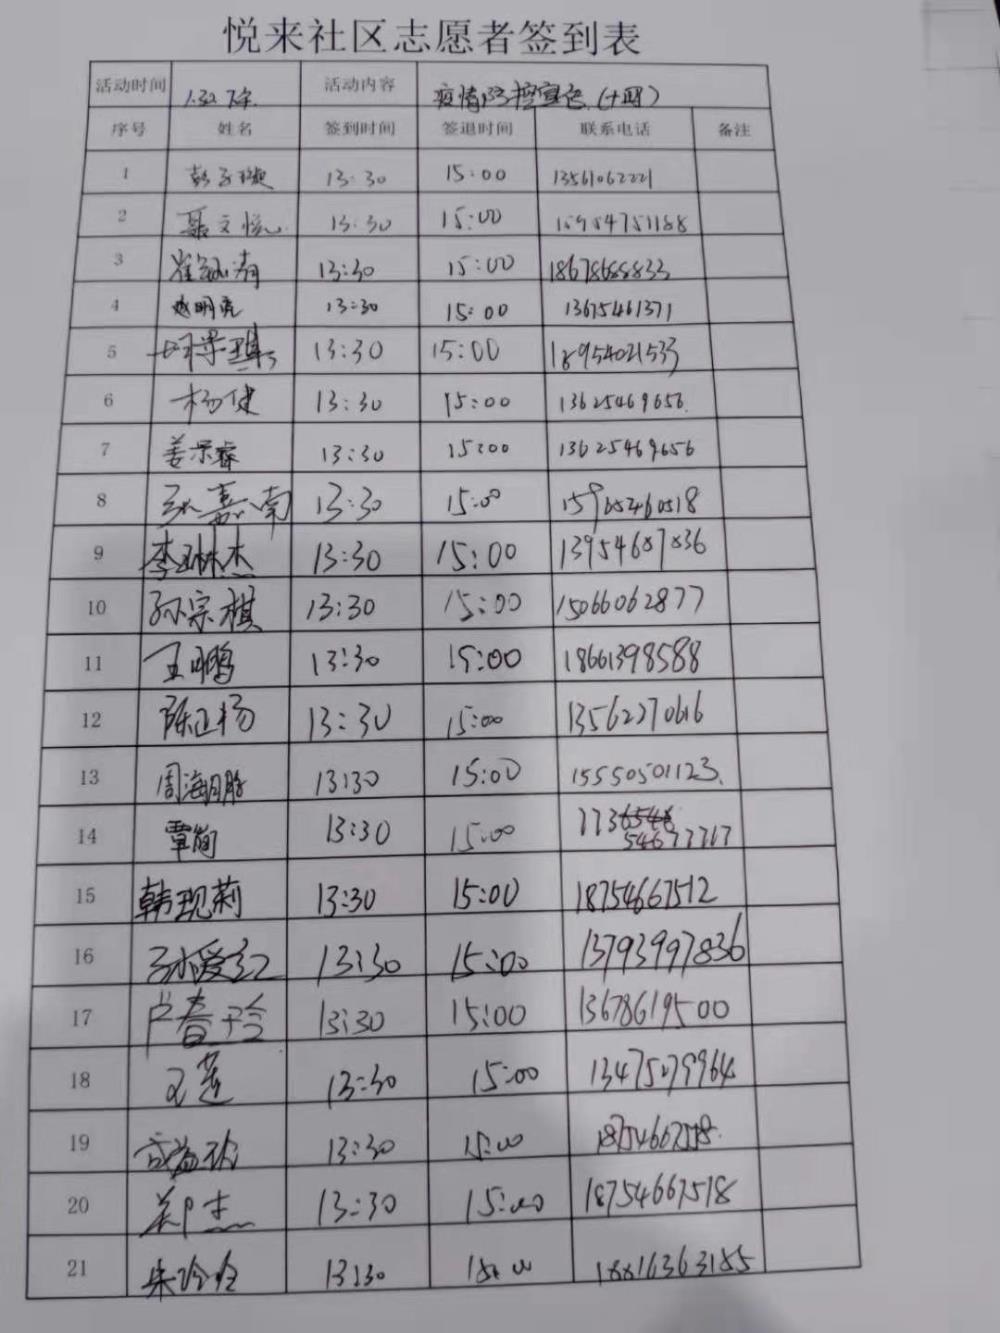 悦来社区志愿者签到表
活动时间 1.30 下午 活动内容 疫情防控宣传（十四）
序号 姓名 签到时间 签退时间 联系电话 备注
1 13:30 15:00 13561062221
2 聂文悦 13:30 15:00 15954751188
3 13:30 15:00 18678688833
4 赵明亮 13:30 15:00 13675461371
5 13:30 15:00 18954021533
6 杨健 13:30 15:00 13625469656
7 姜荣睿 13:30 15:00 13625469656
8 嘉南 13:30 15:00 15965460518
9 李琳杰 13:30 15:00 13954687836
10 孙宗棋 13:30 15:00 15066062877
11 王鹏 13:30 15:00 18661398588
12 陈正杨 13:30 15:00 13562270616
13 周海鹏 13:30 15:00 15550501123
14 覃菊 13:30 15:00
15 韩现莉 13:30 15:00 18754667512
16 孙爱红 13:30 15:00 13793997836
17 卢春玲 13:30 15:00 13678619500
18 王莲 13:30 15:00 13475079964
19 13:30 15:00
20 郑杰 13:30 15:00 18754667518
21 朱玲玲 13:30 15:00 18816363185